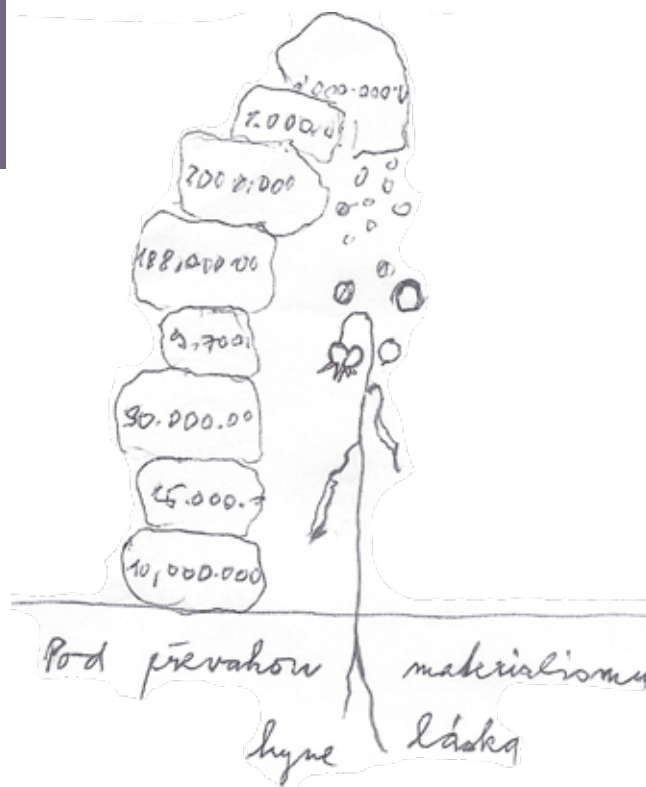 2.000.000
200 0.000
188,000 00
9.700.
90.000.00
25.000.-
10,000.000
Pod převahou materialismu
hyne láska